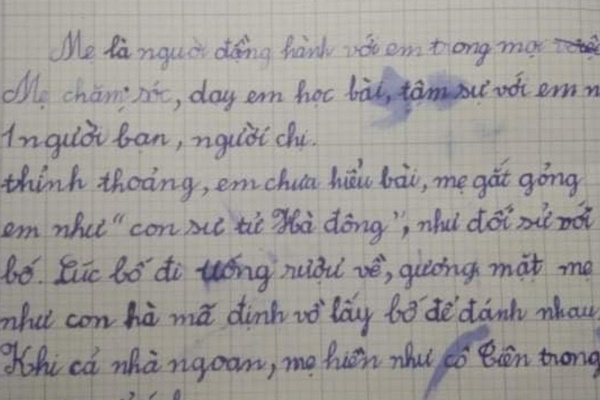 Mẹ là người đồng hành với em trong mọi
Mẹ chăm sóc, dạy em học bài, tâm sự với em n
1 người bạn, người chị.
thỉnh thoảng, em chưa hiểu bài, mẹ gắt gỏng
em như "con sư tử Hà đông", như đối sử với
bố. Lúc bố đi uống rượu về, gương mặt mẹ
như con hà mã định vồ lấy bố để đánh nhau.
Khi cả nhà ngoan, mẹ hiền như cô Tiên trong